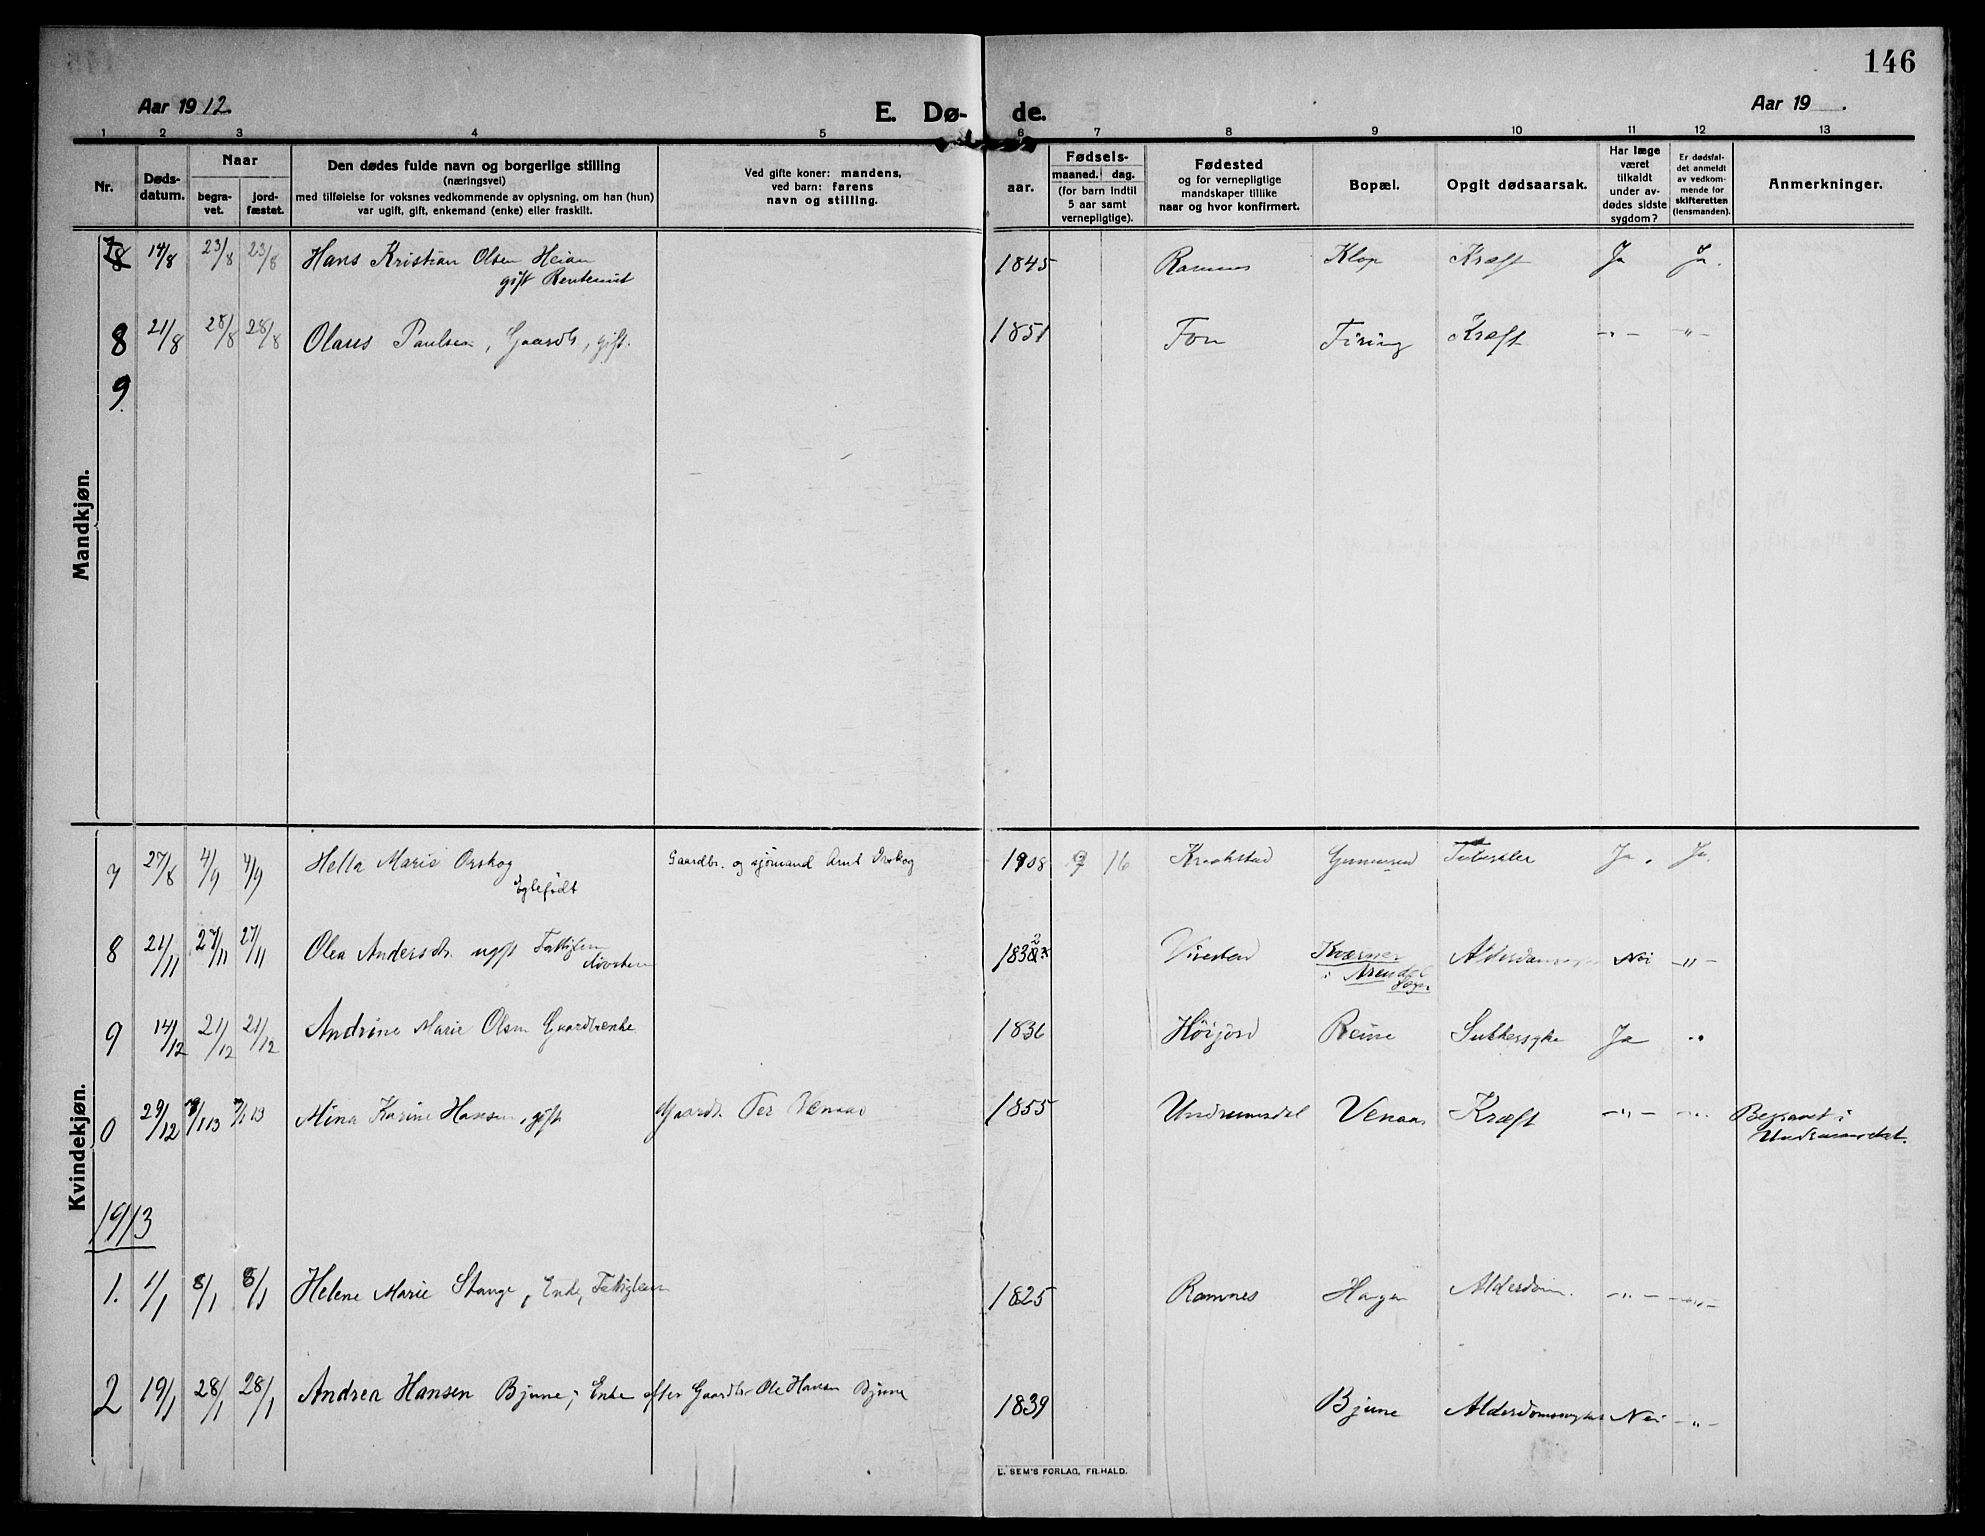 146
Aar 1912.
E. Dø- de.
Aar 19 .
1 2 3 4 5 6 7 8 9 10 11 12 13
Nr.
Døds-
datum.
Naar
begra-
vet.
jord-
fæstet.
Den dødes fulde navn og borgerlige stilling
(næringsvei)
med tilføielse for voksnes vedkommende av oplysning, om han (hun)
var ugift, gift, enkemand (enke) eller fraskilt.
Ved gifte koner: mandens,
ved barn: farens
navn og stilling.
aar.
Fødsels-
maaned. dag.
(for barn indtil
5 aar samt
vernepligtige).
Fødested
og for vernepligtige
mandskaper tillike
naar og hvor konfirmert.
Bopæl.
Opgit dødsaarsak.
Har læge
været
tilkaldt
under av-
dødes sidste
sygdom?
Er dødsfal-
det anmeldt
av vedkom-
mende for
skifteretten
(lensmanden).
Anmerkninger.
Mandkjøn.
7 14/8 23/8 23/8 Hans Kristian Olsen Heian 1845 Ramnes Klop Kræft Ja Ja.
gift Rentenist
8 21/8 28/8 28/8 Olaus Paulsen, Gaardb, gift. 1851 Fon Firing Kræft -"- -"-
9
Kvindekjøn.
7 27/8 4/9 4/9 Hella Marie Orskog Gaardbr. og sjømand Arnt Orskog 1908 9 16 Kraakstad Gunnerød Ja. Ja.
Egtefødt
8 21/11 27/11 27/11 Olea Andersdr. ugift Kværner Nei -"-
i Arendal
9 14/12 21/12 21/12 Andrine Marie Olsen Gaardbrenke 1836 Høijord Reine Sukkersyke Ja "
0 29/12 7/1 13 7/1 13 Mina Karine Hansen, gift Gaardb. Per Venaas 1855 Undrumsdal Venaas Kræft -"- -"- Begravet i
Undrumsdal.
1913
1. 1/1 8/1 8/1 Helene Marie Stange, Enke, Fattiglem 1825 Ramnes Hagen Alderdom. -"- -"-
2 19/1 28/1 28/1 Andrea Hansen Bjune, Enke efter Gaardbr Ole Hansen Bjune 1839 Bjune Nei -"-
E. SEM'S FORLAG, FR.HALD.